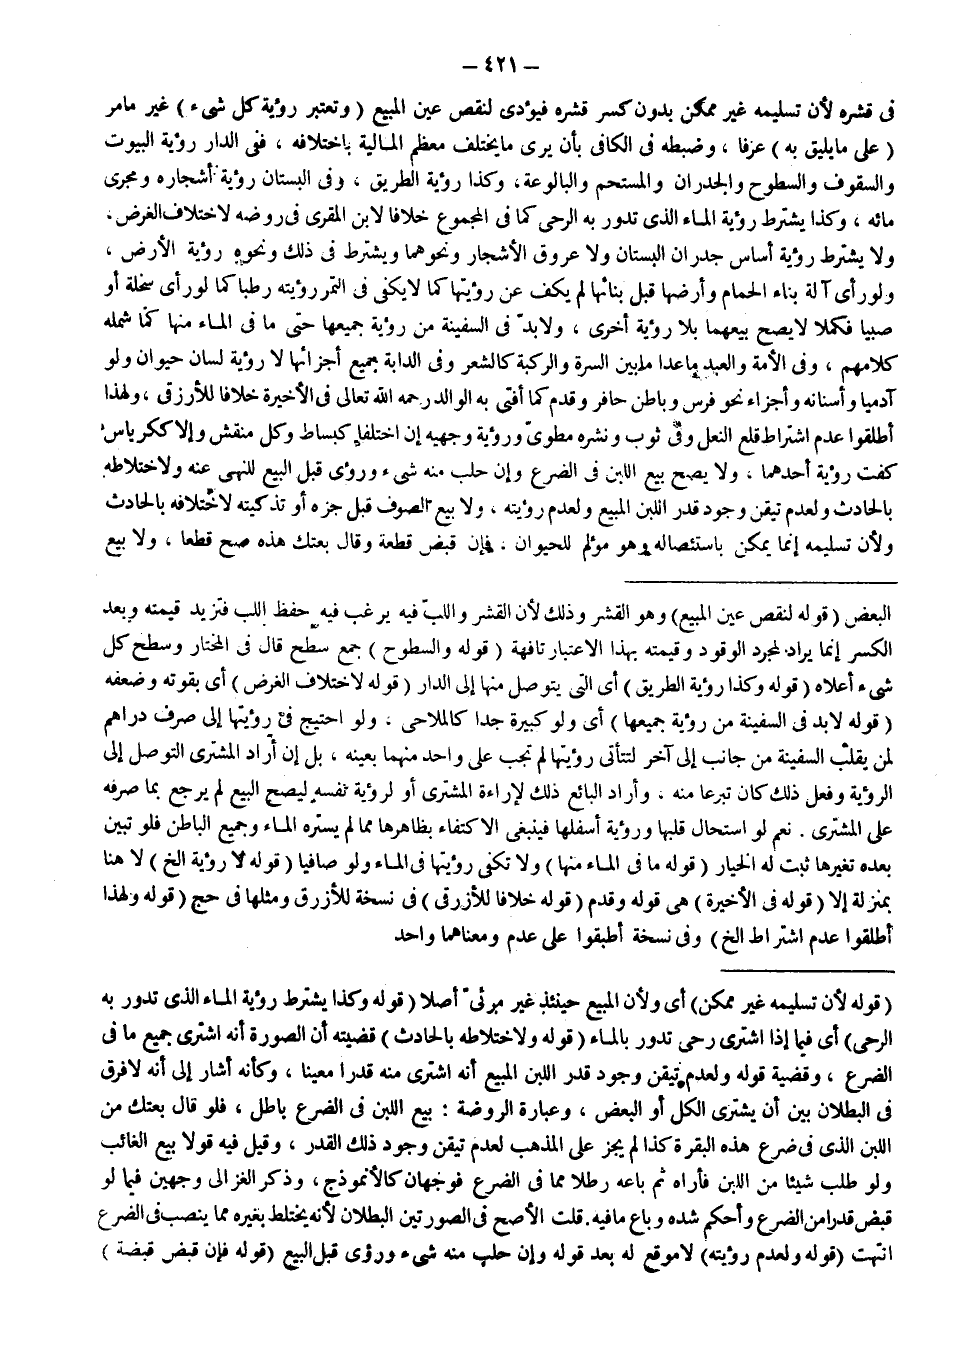 – ٤٢١ –
فى قشره لأن تسليمه غير ممكن بدون كسر قشره فيؤدى لنقص عين المبيع ( وتعتبر رؤية كل شىء ) غير مامر
( على مايليق به ) عرفا ، وضبطه فى الكافى بأن يرى مايختلف معظم المالية باختلافه ، ففى الدار رؤية البيوت
والسقوف والسطوح والجدران والمستحم والبالوعة، وكذا رؤية الطريق ، وفى البستان رؤية أشجاره ومجرى
مائه ، وكذا يشترط رؤية الماء الذى تدور به الرحى كما فى المجموع خلافا لابن المقرى فى روضه لاختلاف الغرض ،
ولا يشترط رؤية أساس جدران البستان ولا عروق الأشجار ونحوهما ويشترط فى ذلك ونحوه رؤية الأرض ،
ولو رأى آلة بناء الحمام وأرضها قبل بنائها لم يكف عن رؤيتها كما لايكفى فى التمر رؤيته رطبا كما لو رأى سخلة أو
صبيا فكملا لايصح بيعهما بلا رؤية أخرى ، ولابدّ فى السفينة من رؤية جميعها حتى ما فى الماء منها كما شمله
كلامهم ، وفى الأمة والعبد ماعدا مابين السرة والركبة كالشعر وفى الدابة جميع أجزائها لا رؤية لسان حيوان ولو
آدميا وأسنانه وأجزاء نحو فرس وباطن حافر وقدم كما أفتى به الوالد رحمه الله تعالى فى الأخيرة خلافا للأزرقى ، ولهذا
أطلقوا عدم اشتراط قلع النعل وفى ثوب ونشره مطوىّ ورؤية وجهيه إن اختلفا كبساط وكل منقش وإلا ككرباس
كفت رؤية أحدهما ، ولا يصح بيع اللبن فى الضرع وإن حلب منه شىء ورؤى قبل البيع للنهى عنه ولاختلاطه
بالحادث ولعدم تيقن وجود قدر اللبن المبيع ولعدم رؤيته ، ولا بيع الصوف قبل جزه أو تذكيته لاختلافه بالحادث
ولأن تسليمه إنما يمكن باستئصاله وهو مؤلم للحيوان . فإن قبض قطعة وقال بعتك هذه صح قطعا ، ولا بيع
البعض ( قوله لنقص عين المبيع) وهو القشر وذلك لأن القشر واللبّ فيه يرغب فيه حفظ اللب فتزيد قيمته وبعد
الكسر إنما يراد لمجرد الوقود وقيمته بهذا الاعتبار تافهة ( قوله والسطوح ) جمع سطح قال فى المختار وسطح كل
شىء أعلاه ( قوله وكذا رؤية الطريق ) أى التى يتوصل منها إلى الدار ( قوله لاختلاف الغرض ) أى بقوته وضعفه
( قوله لابد فى السفينة من رؤية جميعها ) أى ولو كبيرة جدا كالملاحى ، ولو احتيج فى رؤيتها إلى صرف دراهم
لمن يقلب السفينة من جانب إلى آخر لتتأتى رؤيتها لم تجب على واحد منهما بعينه ، بل إن أراد المشترى التوصل إلى
الرؤية وفعل ذلك كان تبرعا منه ، وأراد البائع ذلك لإراءة المشترى أو لرؤية نفسه ليصح البيع لم يرجع بما صرفه
على المشترى . نعم لو استحال قلبها ورؤية أسفلها فينبغى الاكتفاء بظاهرها مما لم يستره الماء وجميع الباطن فلو تبين
بعده تغيرها ثبت له الخيار ( قوله ما فى الماء منها ) ولا تكفى رؤيتها فى الماء ولو صافيا ( قوله لا رؤية الخ ) لا هنا
بمنزلة إلا ( قوله فى الأخيرة ) هى قوله وقدم ( قوله خلافا للأزرقى ) فى نسخة للأزرق ومثلها فى حج ( قوله ولهذا
أطلقوا عدم اشتراط الخ ) وفى نسخة أطبقوا على عدم ومعناهما واحد
( قوله لأن تسليمه غير ممكن) أى ولأن المبيع حينئذ غير مرئىّ أصلا ( قوله وكذا يشترط رؤية الماء الذى تدور به
الرحى) أى فيما إذا اشترى رحى تدور بالماء ( قوله ولاختلاطه بالحادث ) قضيته أن الصورة أنه اشترى جميع ما فى
الضرع ، وقضية قوله ولعدم تيقن وجود قدر اللبن المبيع أنه اشترى منه قدرا معينا ، وكأنه أشار إلى أنه لافرق
فى البطلان بين أن يشترى الكل أو البعض ، وعبارة الروضة : بيع اللبن فى الضرع باطل ، فلو قال بعتك من
اللبن الذى فى ضرع هذه البقرة كذا لم يجز على المذهب لعدم تيقن وجود ذلك القدر ، وقيل فيه قولا بيع الغائب
ولو طلب شيئا من اللبن فأراه ثم باعه رطلا مما فى الضرع فوجهان كالأنموذج ، وذكر الغزالى وجهين فيما لو
قبض قدرا من الضرع وأحكم شده وباع مافيه. قلت الأصح فى الصورتين البطلان لأنه يختلط بغيره مما ينصب فى الضرع
انتهت (قوله ولعدم رؤيته) لاموقع له بعد قوله وإن حلب منه شىء ورؤى قبل البيع (قوله فإن قبض قبضة )